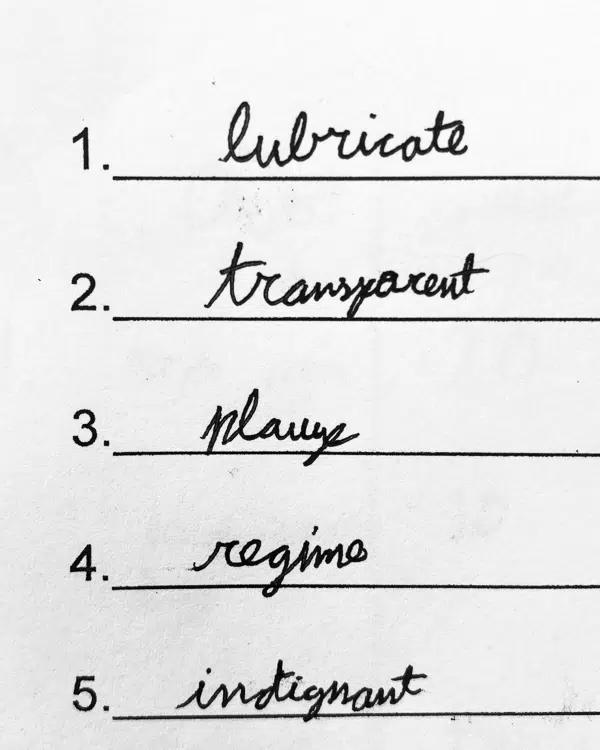 1. lubricate
2. transparent
3.
4. regime
5. indignant